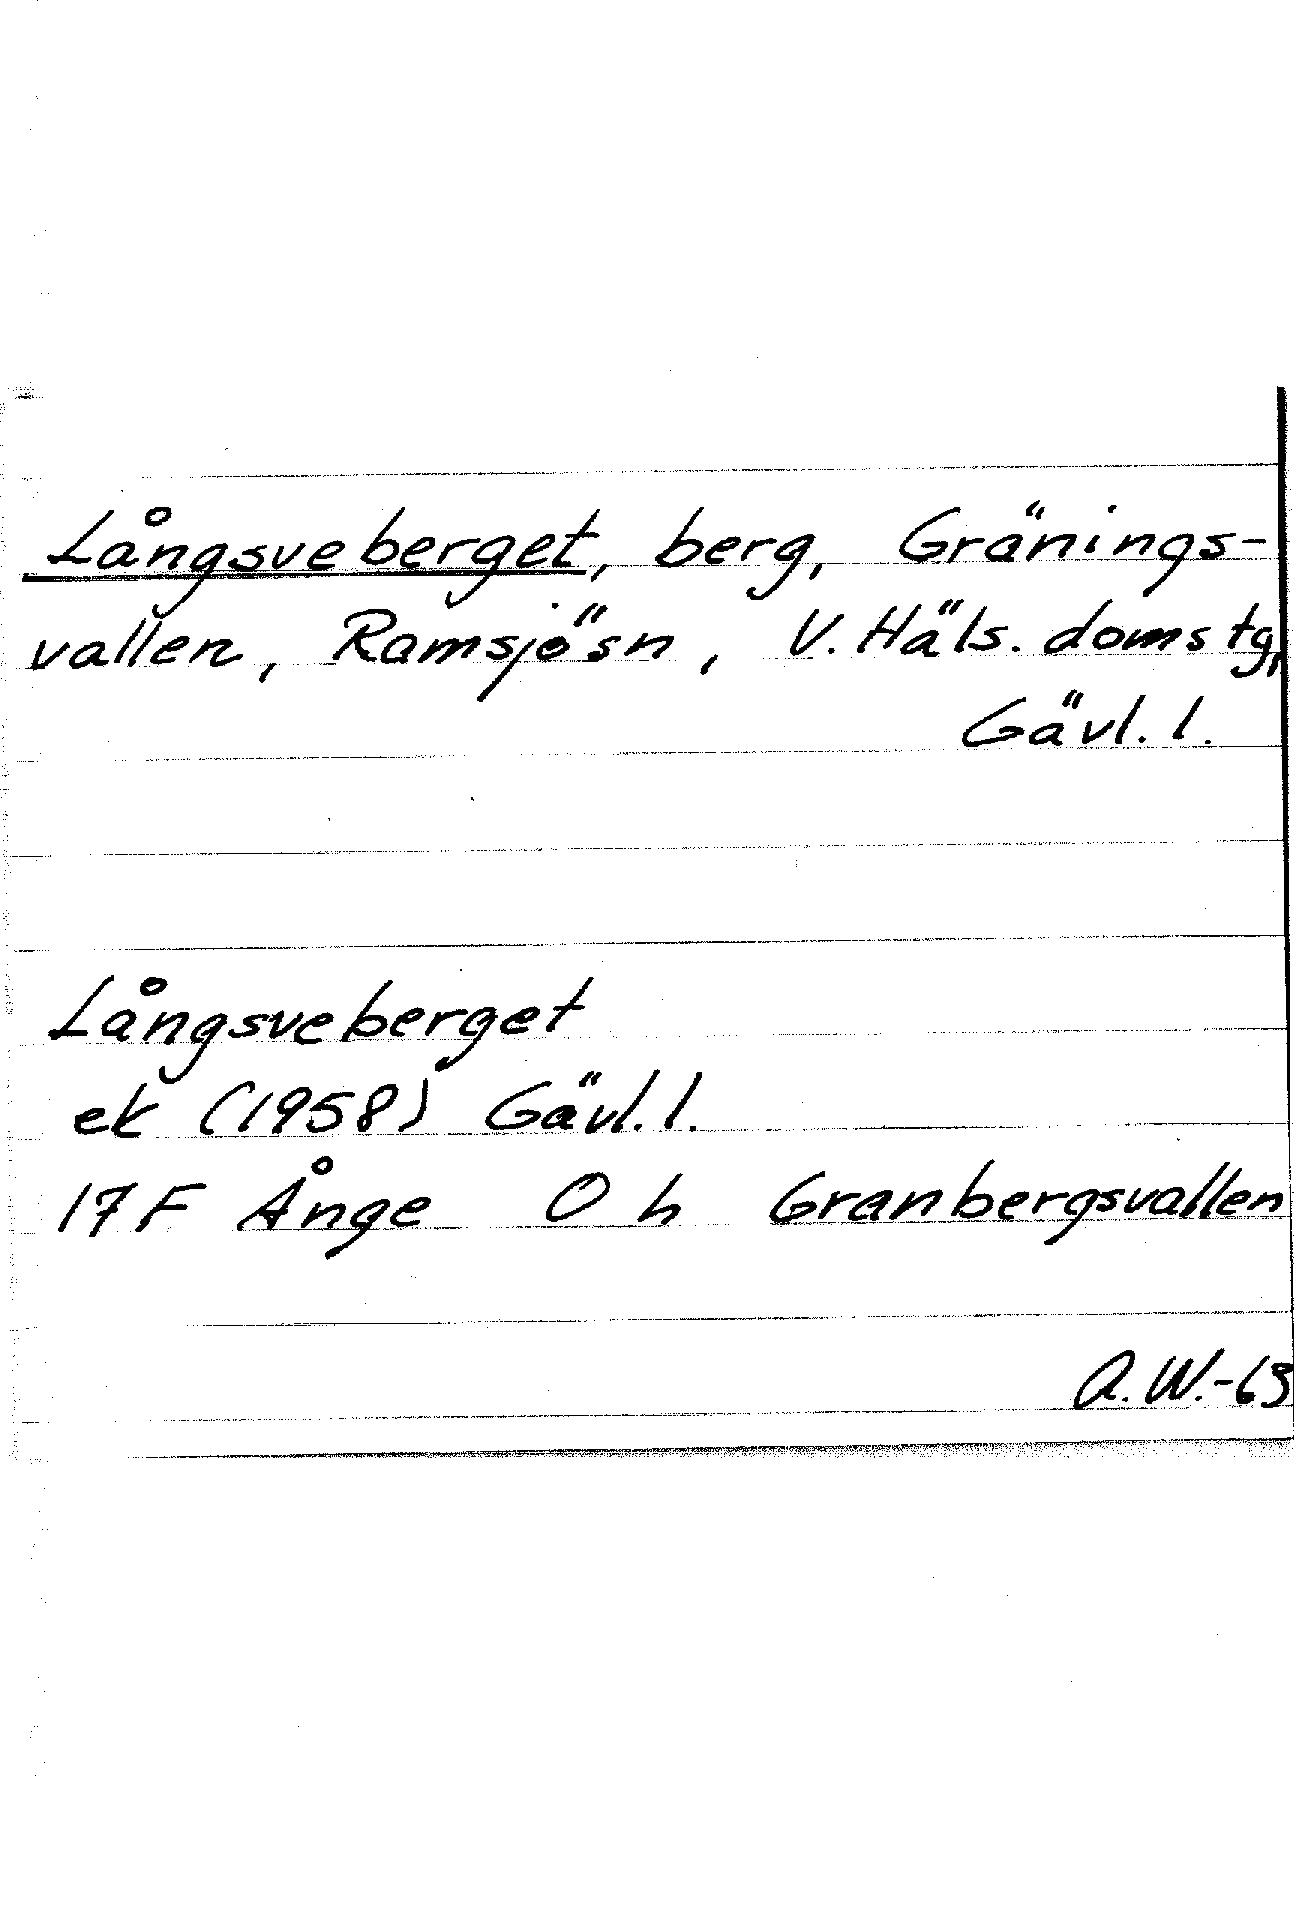 Långsveberget, berg, Gränings-
vallen, Ramsjösn, V. Häls. domstg,
Gävl. l.
Långsveberget
ek (1958) Gävl. l.
17 F Ånge O h Granbergsvallen
A.W.-63